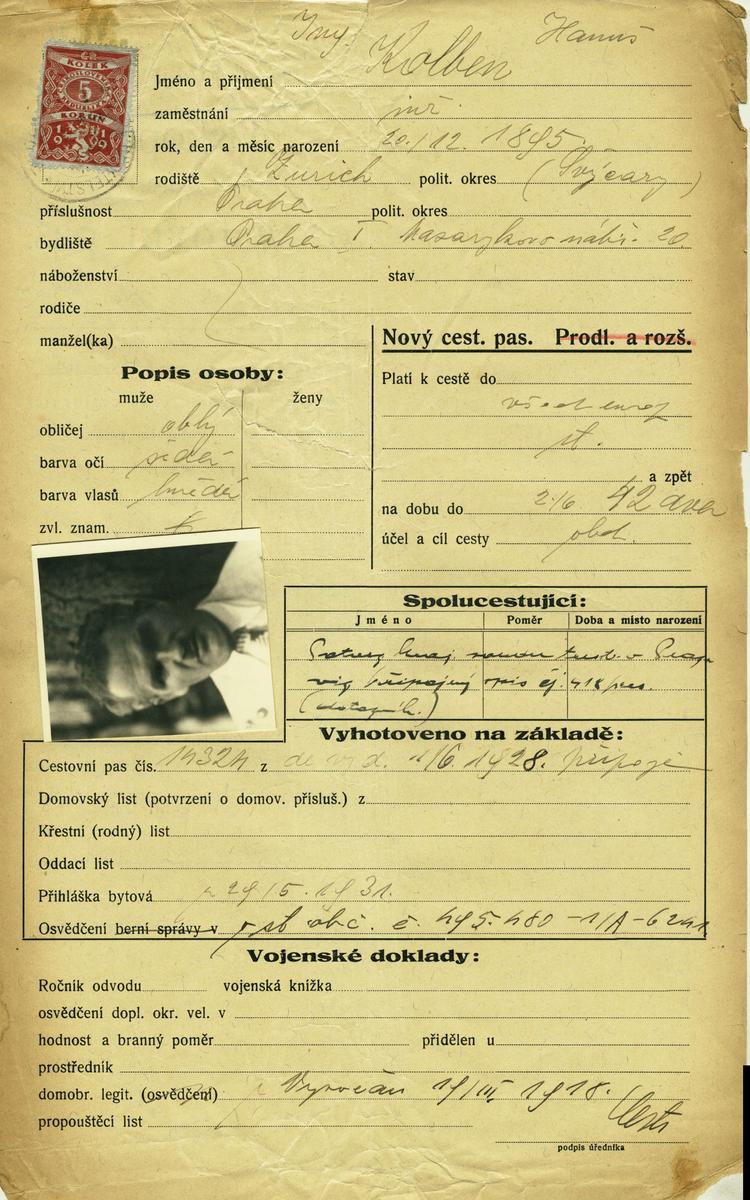 KOLEK
5
KORUN
1919
Ing. Kolben Hanuš
Jméno a příjmení
zaměstnání inž.
rok, den a měsíc narození 20./12. 1895.
rodiště Zurich polit. okres (Švýcary)
příslušnost Praha polit. okres
bydliště Praha I Masarykovo nábř. 20.
náboženství stav
rodiče
manžel(ka)
Nový cest. pas. Prodl. a rozš.
Popis osoby:
muže ženy
Platí k cestě do
všech evrop
st.
obličej oblý
barva očí šedá
barva vlasů hnědá
zvl. znam.
a zpět
na dobu do 2/6 42 dva
účel a cíl cesty obch.
Spolucestující:
Jméno Poměr Doba a místo narození
Vyhotoveno na základě:
Cestovní pas čís. z 1/6. 1928. připoj
Domovský list (potvrzení o domov. přísluš.) z
Křestní (rodný) list
Oddací list
Přihláška bytová 29/5. 1931.
Osvědčení berní správy v st. obč. č. 495.480 - 1/A - 6
Vojenské doklady:
Ročník odvodu vojenská knížka
osvědčení dopl. okr. vel. v
hodnost a branný poměr přidělen u
prostředník
domobr. legit. (osvědčení) Vysočan 19/III. 1918.
propouštěcí list
podpis úředníka